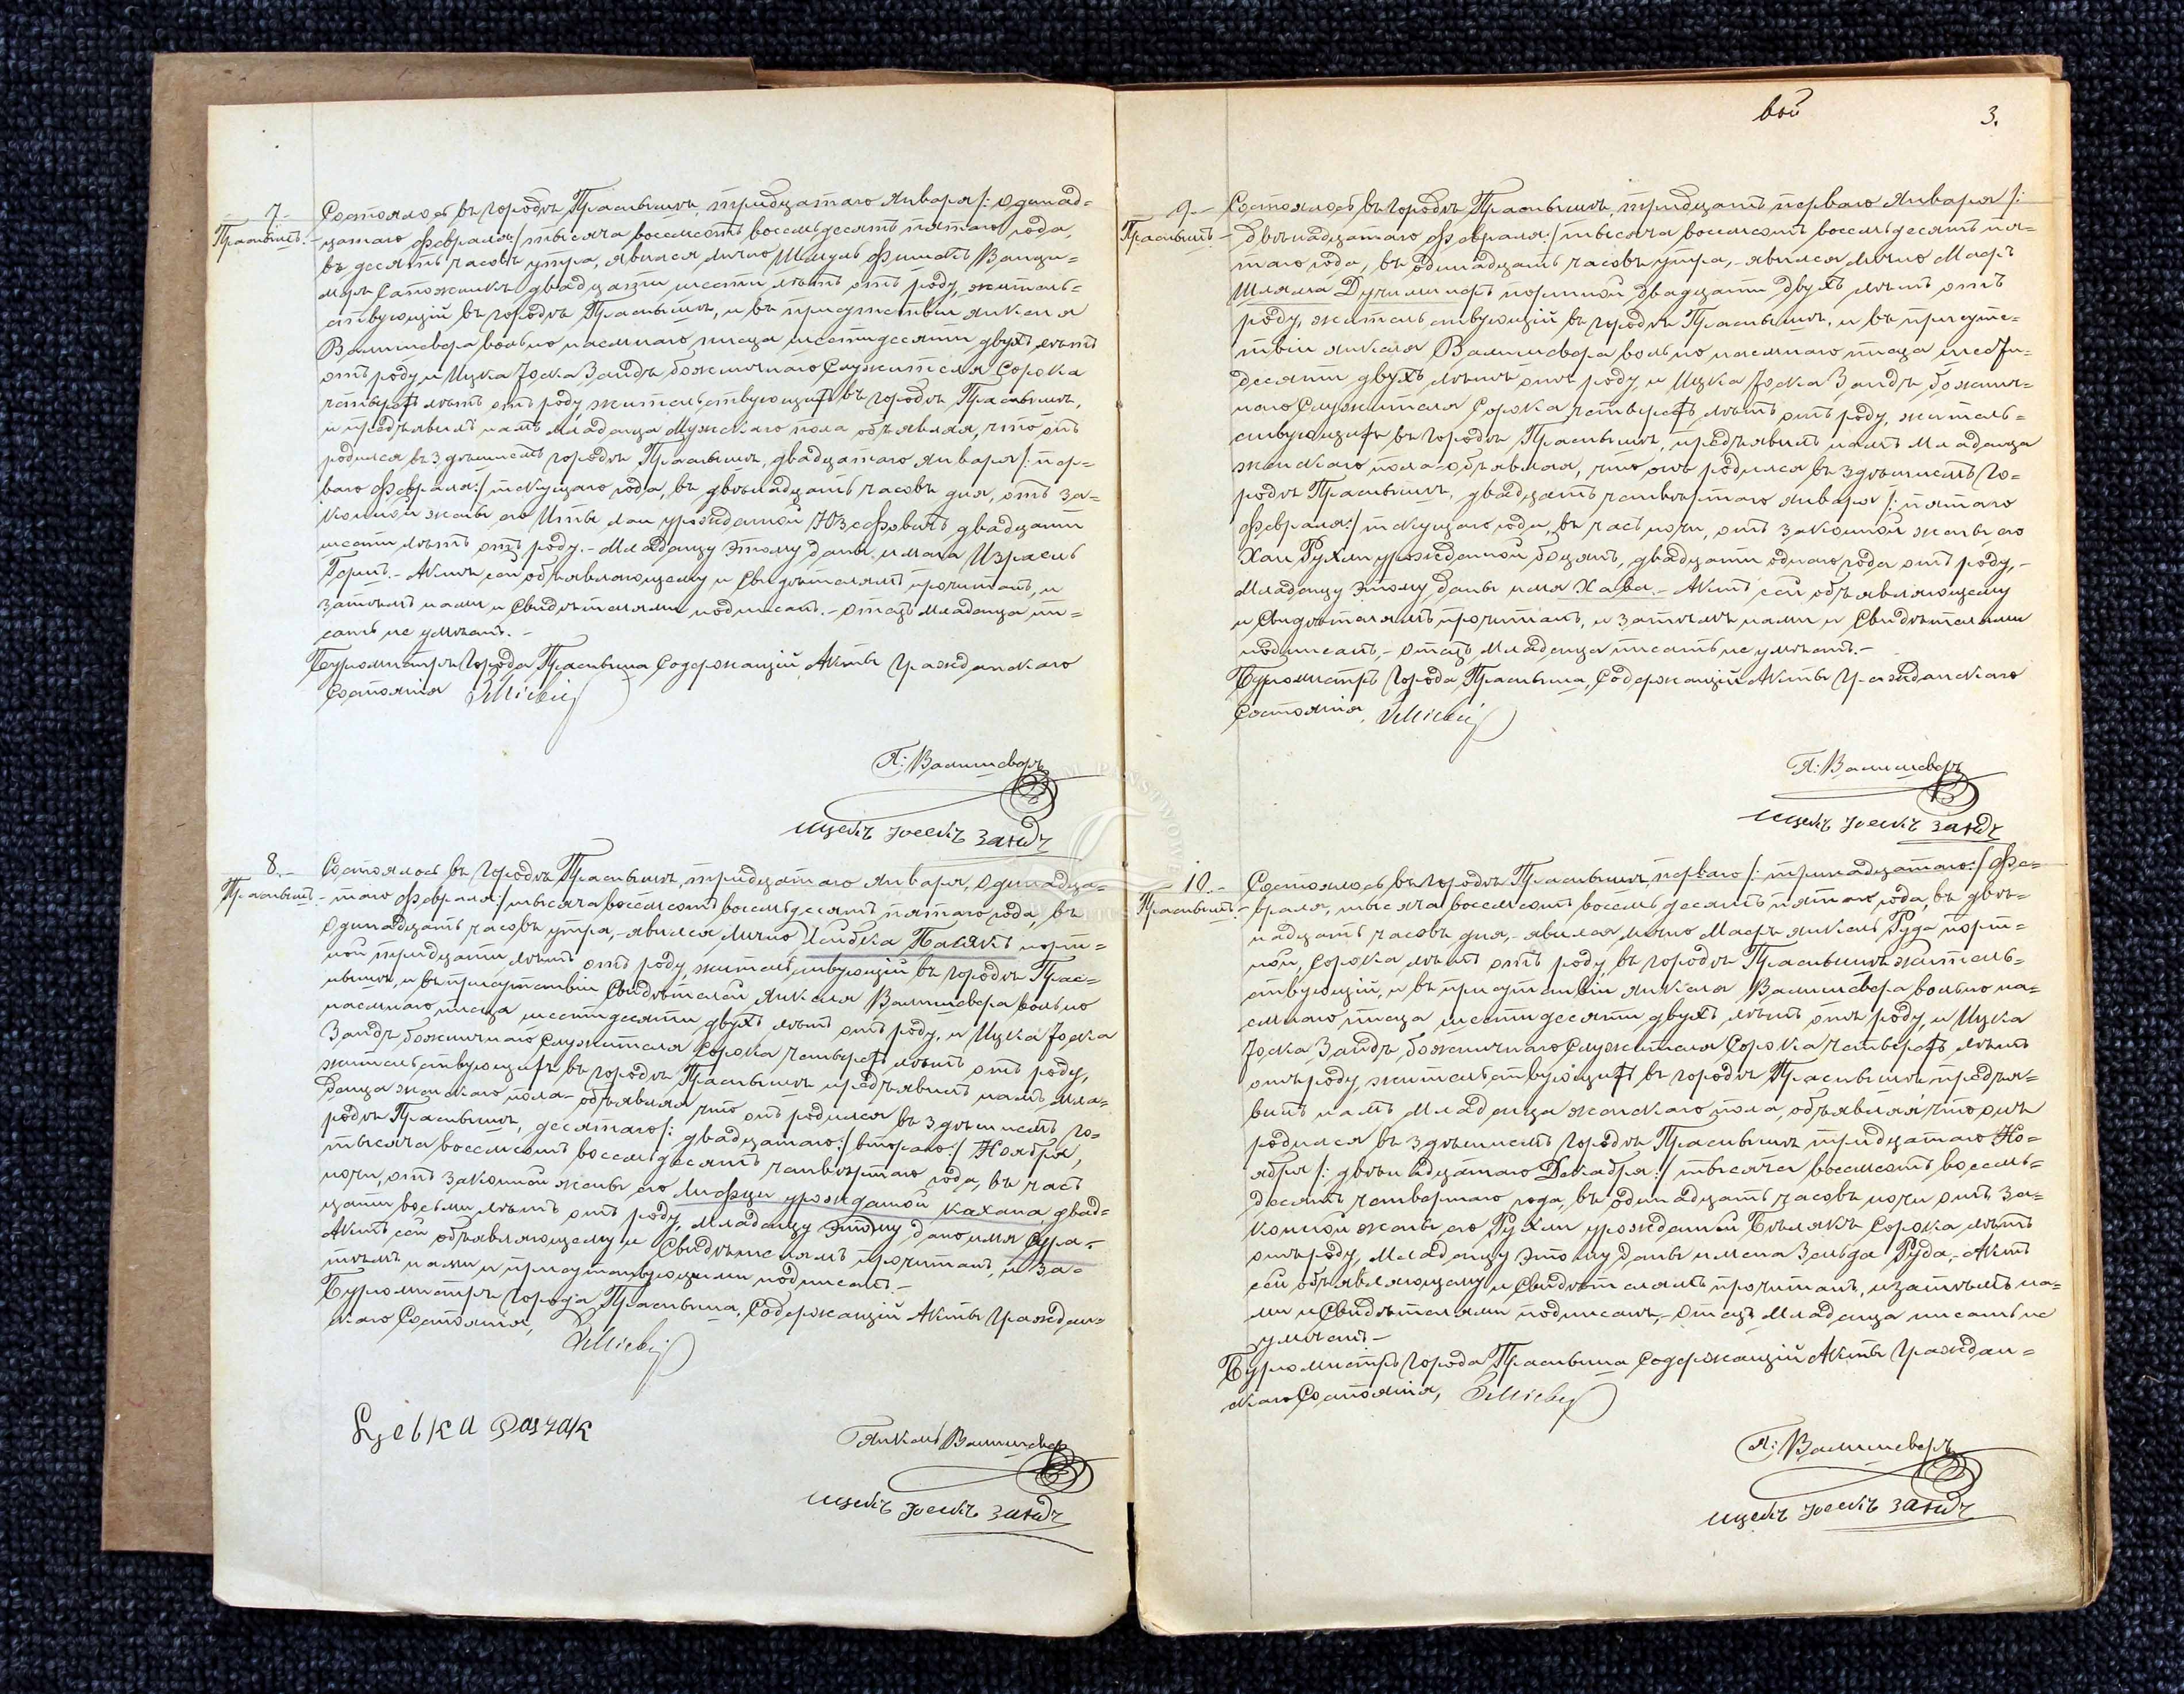 7.-
Праснышъ.-
Состоялось въ городѣ Праснышѣ, тридцатаго Января /: одинад=
цатаго Февраля:/ тысяча восемсотъ восемьдесятъ пятаго года,
въ десять часовъ утра, явился лично Шмуль
сапожникъ двадцати шести лѣтъ отъ роду, житель=
ствующій въ городѣ Праснышѣ, и въ присутствіи Янкеля
Валишевера вольно наемнаго писца шестидесяти двухъ лѣтъ
отъ роду и Ицка Іоска Зандъ божничнаго служителя сорока
четырехъ лѣтъ отъ роду жительствующихъ въ городѣ Праснышѣ,
и предъявилъ намъ младенца мужскаго пола объявляя, что онъ
родился въ здѣшнемъ городѣ Праснышѣ, двадцатаго Января /: пер=
ваго Февраля:/ текущаго года, въ двѣнадцать часовъ дня, отъ за=
конной жены его урожденной Юзефовичъ двадцати
шести лѣтъ отъ роду.- Младенцу этому даны имена Израель
Актъ сей объявляющему и свидѣтелямъ прочитанъ, и
затѣмъ нами и свидѣтелями подписанъ.- Отецъ младенца пи=
сать не умѣетъ.-
Бургомистръ города Прасныша Содержащій Акты гражданскаго
состоянія
Я: Валишеверъ
Ицекъ Іосекъ Зандъ
8.-
Праснышъ.-
Состоялось въ городѣ Праснышѣ, тридцатаго Января, Одинадца=
таго Февраля:/ тысяча восемсотъ восемьдесятъ пятаго года, въ
одинадцать часовъ утра,- явился лично Лейбка Пасякъ порт=
ной тридцати лѣтъ отъ роду, жительствующій въ городѣ Прас=
нышѣ, и въ присутствіи свидѣтелей Янкеля Валишевера вольно
наемнаго писца шестидесяти двухъ лѣтъ отъ роду, и Ицка Іоска
Зандъ божничнаго служителя сорока четырехъ лѣтъ отъ роду,
жительствующихъ въ городѣ Праснышѣ предъявилъ намъ мла=
денца женскаго пола- объявляя что онъ родился въ здѣшнемъ го=
родѣ Праснышѣ, десятаго /: двадцать:/ втораго:/ Ноября,
тысяча восемсотъ восемьдесятъ четвертаго года, въ часъ
ночи, отъ законной жены его урожденной Кахана, двад=
цати восьми лѣтъ отъ роду, младенцу этому дано имя Сура.-
Актъ сей объявляющему и свидѣтелямъ прочитанъ, и за=
тѣмъ нами и присутствующими подписанъ.-
Бургомистръ города Прасныша, Содержащій Акты граждан=
скаго состоянія,
Lejbka Paszak
Янкель Валишеверъ
Ицекъ Іосекъ Зандъ
вой
3.
9.-
Праснышъ.-
Состоялось въ городѣ Праснышѣ, тридцать перваго Января /:
двѣнадцатаго Февраля:/ тысяча восемсотъ восемьдесятъ пя=
таго года, въ одинадцать часовъ утра,- явился лично Маеръ
Шляма портной двадцати двухъ лѣтъ отъ
роду, жительствующій въ городѣ Праснышѣ, и въ присутс=
твіи Янкеля Валишевера вольно наемнаго писца шести=
десяти двухъ лѣтъ отъ роду, и Ицка Іоска Зандъ божнич=
наго служителя сорока четырехъ лѣтъ отъ роду, житель=
ствующихъ въ городѣ Праснышѣ, предъявилъ намъ младенца
женскаго пола- объявляя, что онъ родился въ здѣшнемъ го=
родѣ Праснышѣ, двадцать четвертаго Января /: пятаго
Февраля:/ текущаго года, въ часъ ночи, отъ законной жены его
Хаи Рухли урожденной двадцати одного года отъ роду,-
Младенцу этому дано имя Хава.- Актъ сей объявляющему
и свидѣтелямъ прочитанъ, и затѣмъ нами и свидѣтелями
подписанъ,- Отецъ младенца писать не умѣетъ.-
Бургомистръ города Прасныша, Содержащій Акты гражданскаго
состоянія,
Я: Валишеверъ
Ицекъ Іосекъ Зандъ
10.-
Праснышъ.-
Состоялось въ городѣ Праснышѣ, перваго /: тринадцатаго:/ Фе=
враля, тысяча восемсотъ восемьдесятъ пятаго года, въ двѣ=
надцать часовъ дня,- явился лично Маеръ Янкель Руда порт=
ной, сорока лѣтъ отъ роду, въ городѣ Праснышѣ житель=
ствующій, и въ присутствіи Янкеля Валишевера вольно на=
емнаго писца шестидесяти двухъ лѣтъ отъ роду, и Ицка
Іоска Зандъ, божничнаго служителя сорока четырехъ лѣтъ
отъ роду, жительствующихъ въ городѣ Праснышѣ предъя=
вилъ намъ младенца женскаго пола, объявляя что онъ
родился въ здѣшнемъ городѣ Праснышѣ тридцатаго Но=
ября /: двѣнадцатаго Декабря:/ тысяча восемсотъ восемь=
десятъ четвертаго года, въ одинадцать часовъ ночи отъ за=
конной жены его Рухли урожденной Бѣлякъ сорока лѣтъ
отъ роду, младенцу этому даны имена Зельда Руда,- Актъ
сей объявляющему и свидѣтелямъ прочитанъ, и затѣмъ на=
ми и свидѣтелями подписанъ,- Отецъ младенца писать не
умѣетъ-
Бургомистръ города Прасныша Содержащій Акты граждан=
скаго состоянія,
Я: Валишеверъ
Ицекъ Іосекъ Зандъ